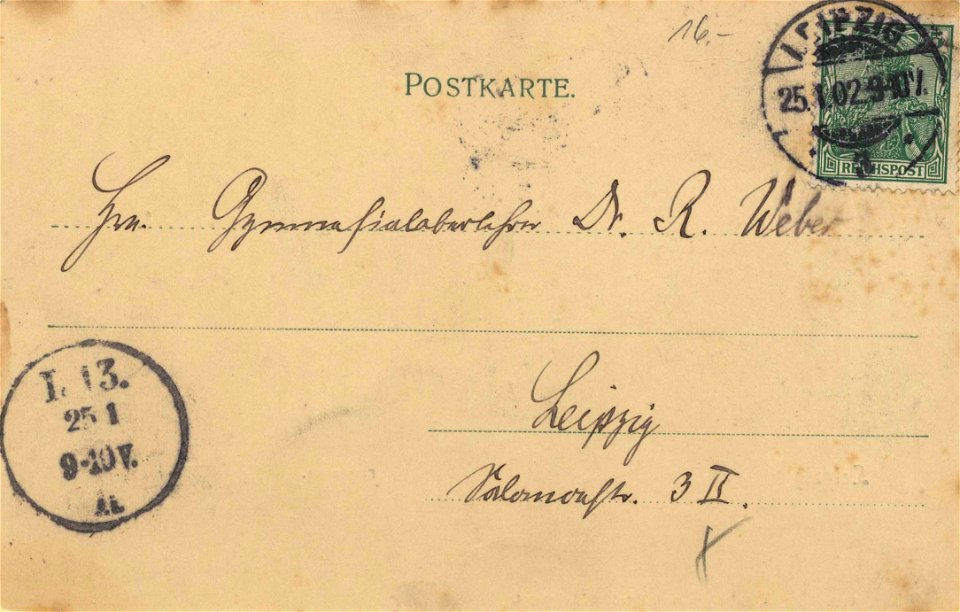 16.-
LEIPZIG
25.1.02.9-10V.
REICHSPOST
POSTKARTE.
Hrn. Gymnasialoberlehrer Dr. R. Weber
Leipzig
Salomonstr. 3 II.
L. 13.
25 1
9-10 V.